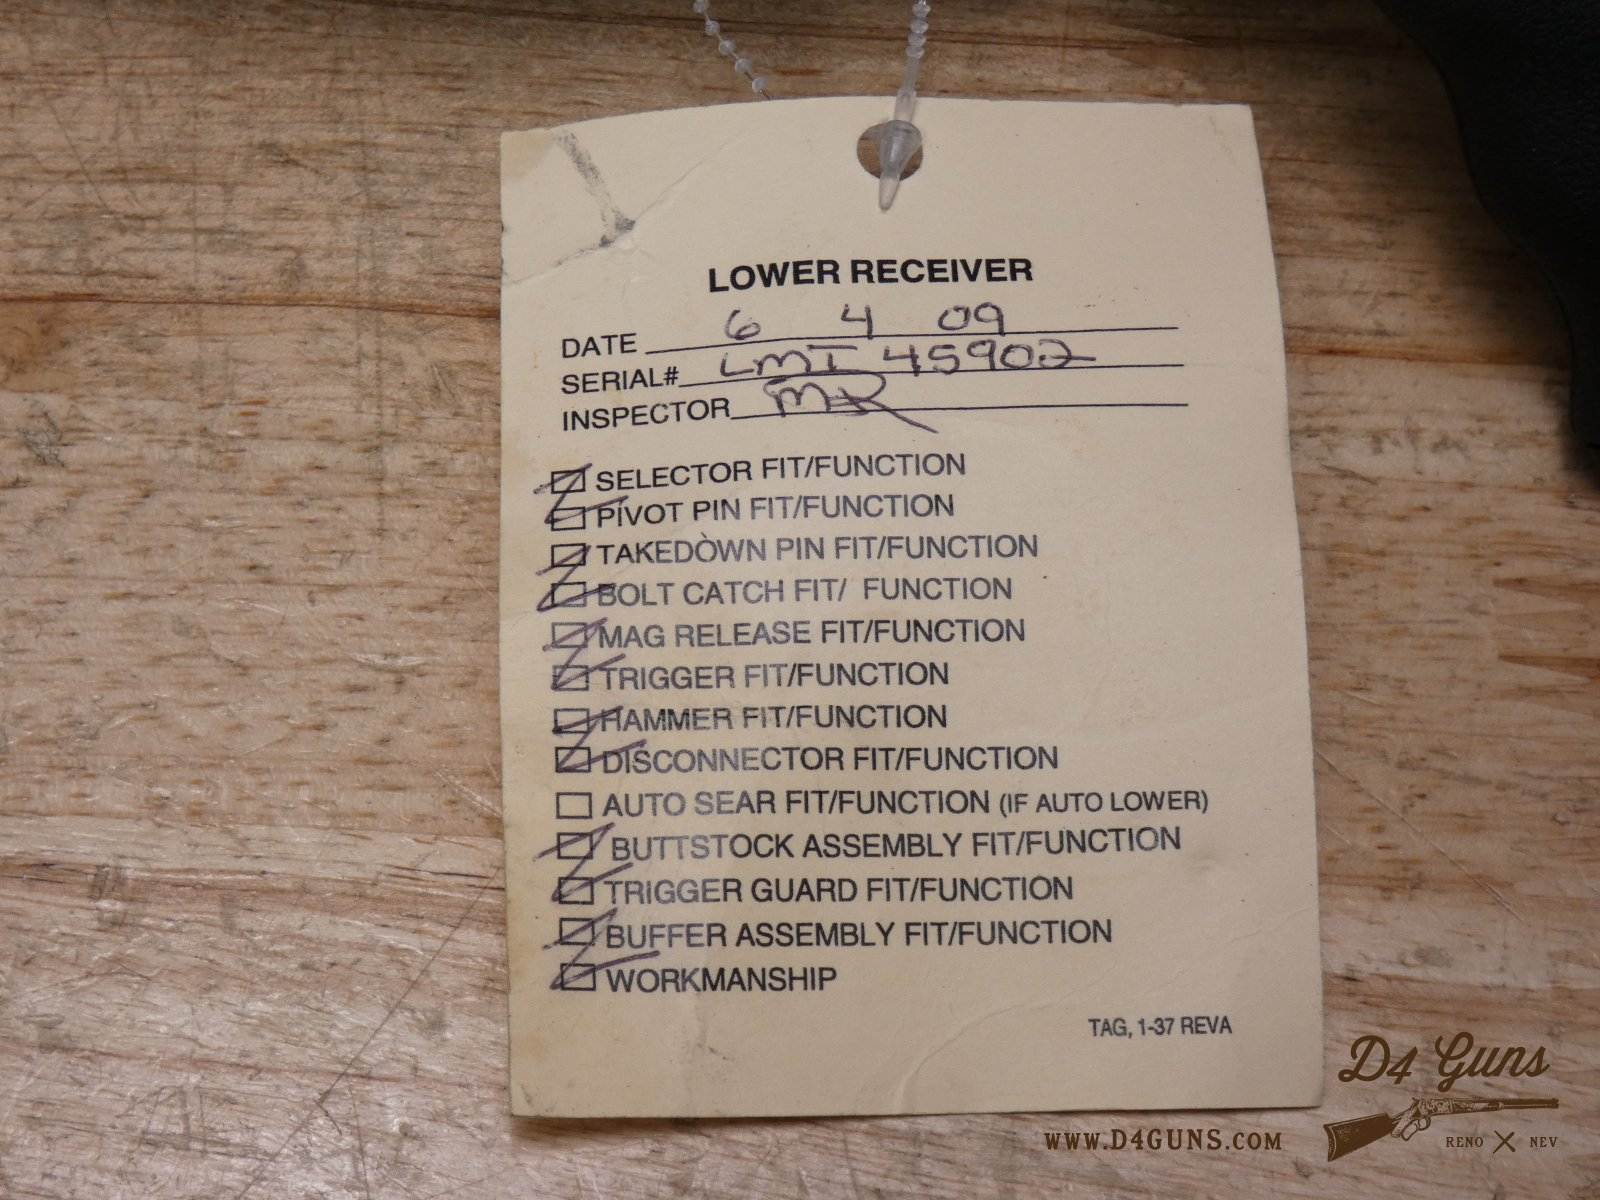 LOWER RECEIVER
DATE 6 4 09
SERIAL# LMT 45902
INSPECTOR MR
SELECTOR FIT/FUNCTION
PIVOT PIN FIT/FUNCTION
TAKEDOWN PIN FIT/FUNCTION
BOLT CATCH FIT/ FUNCTION
MAG RELEASE FIT/FUNCTION
TRIGGER FIT/FUNCTION
HAMMER FIT/FUNCTION
DISCONNECTOR FIT/FUNCTION
AUTO SEAR FIT/FUNCTION (IF AUTO LOWER)
BUTTSTOCK ASSEMBLY FIT/FUNCTION
TRIGGER GUARD FIT/FUNCTION
BUFFER ASSEMBLY FIT/FUNCTION
WORKMANSHIP
TAG, 1-37 REVA
D4 Guns
WWW.D4GUNS.COM
RENO NEV